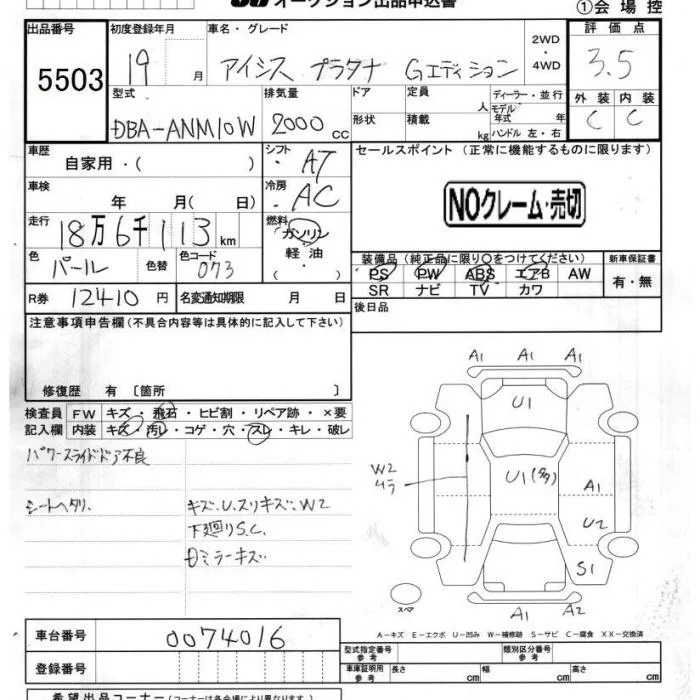 オークション出品申込書 ①会場控
出品番号 初度登録年月 車名・グレード 2WD・4WD 評価点
5503 19 月 アイシス プラタナ Gエディション 3.5
型式 排気量 ドア 定員 人 ディーラー・並行 外装 内装
モデル年式 年
DBA-ANM10W 2000 cc 形状 積載 kg ハンドル 左・右 C C
車歴 自家用・( ) シフト AT セールスポイント (正常に機能するものに限ります)
車検 年 月( 日) 冷房 AC NOクレーム・売切
走行 18万6千113km 燃料 ガソリン・軽油・( )
色 パール 色替 色コード 073
装備品 (純正品に限り○をつけてください) 新車保証書
PS PW ABS エアB AW 有・無
SR ナビ TV カワ
R券 12410円 名変通知期限 月 日 後日品
注意事項申告欄 (不具合内容等は具体的に記入して下さい)
修復歴 有 〔箇所 〕
検査員 FW キズ・飛石・ヒビ割・リペア跡・×要
記入欄 内装 キズ・汚レ・コゲ・穴・スレ・キレ・破レ
パワースライドドア不良
シートヘタリ. キズ.U.スリキズ.W2
下廻りS.C.
ミラーキズ
A1 A1 A1
U1
W2
ムラ
U1(多)
A1
U2
S1
スペア
A1 A2
A-キズ E-エクボ U-凹み W-補修跡 S-サビ C-腐食 XX-交換済
車台番号 0074016
型式指定番号 参考 類別区分番号 参考
登録番号 車庫証明用 参考 長さ cm 幅 cm 高さ cm
希望出品コーナー